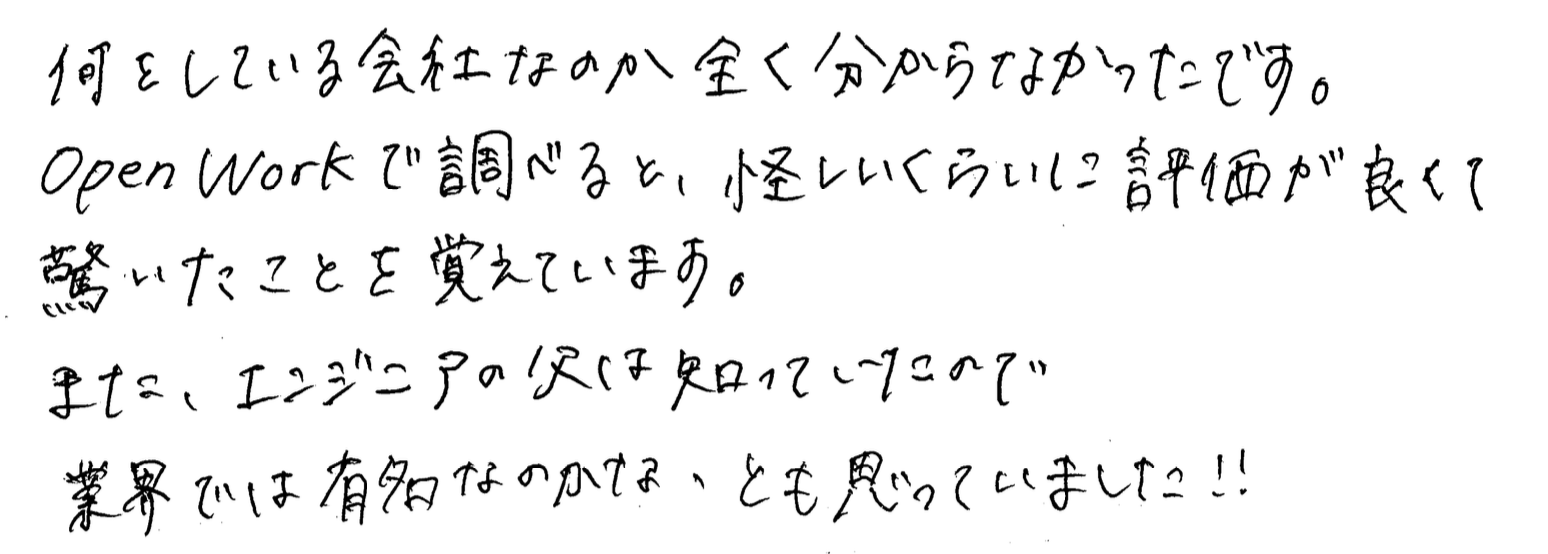 何をしている会社なのか全く分からなかったです。
Open Workで調べると、怪しいくらいに評価が良くて
驚いたことを覚えています。
また、エンジニアの父は知っていたので
業界では有名なのかな、とも思っていました!!